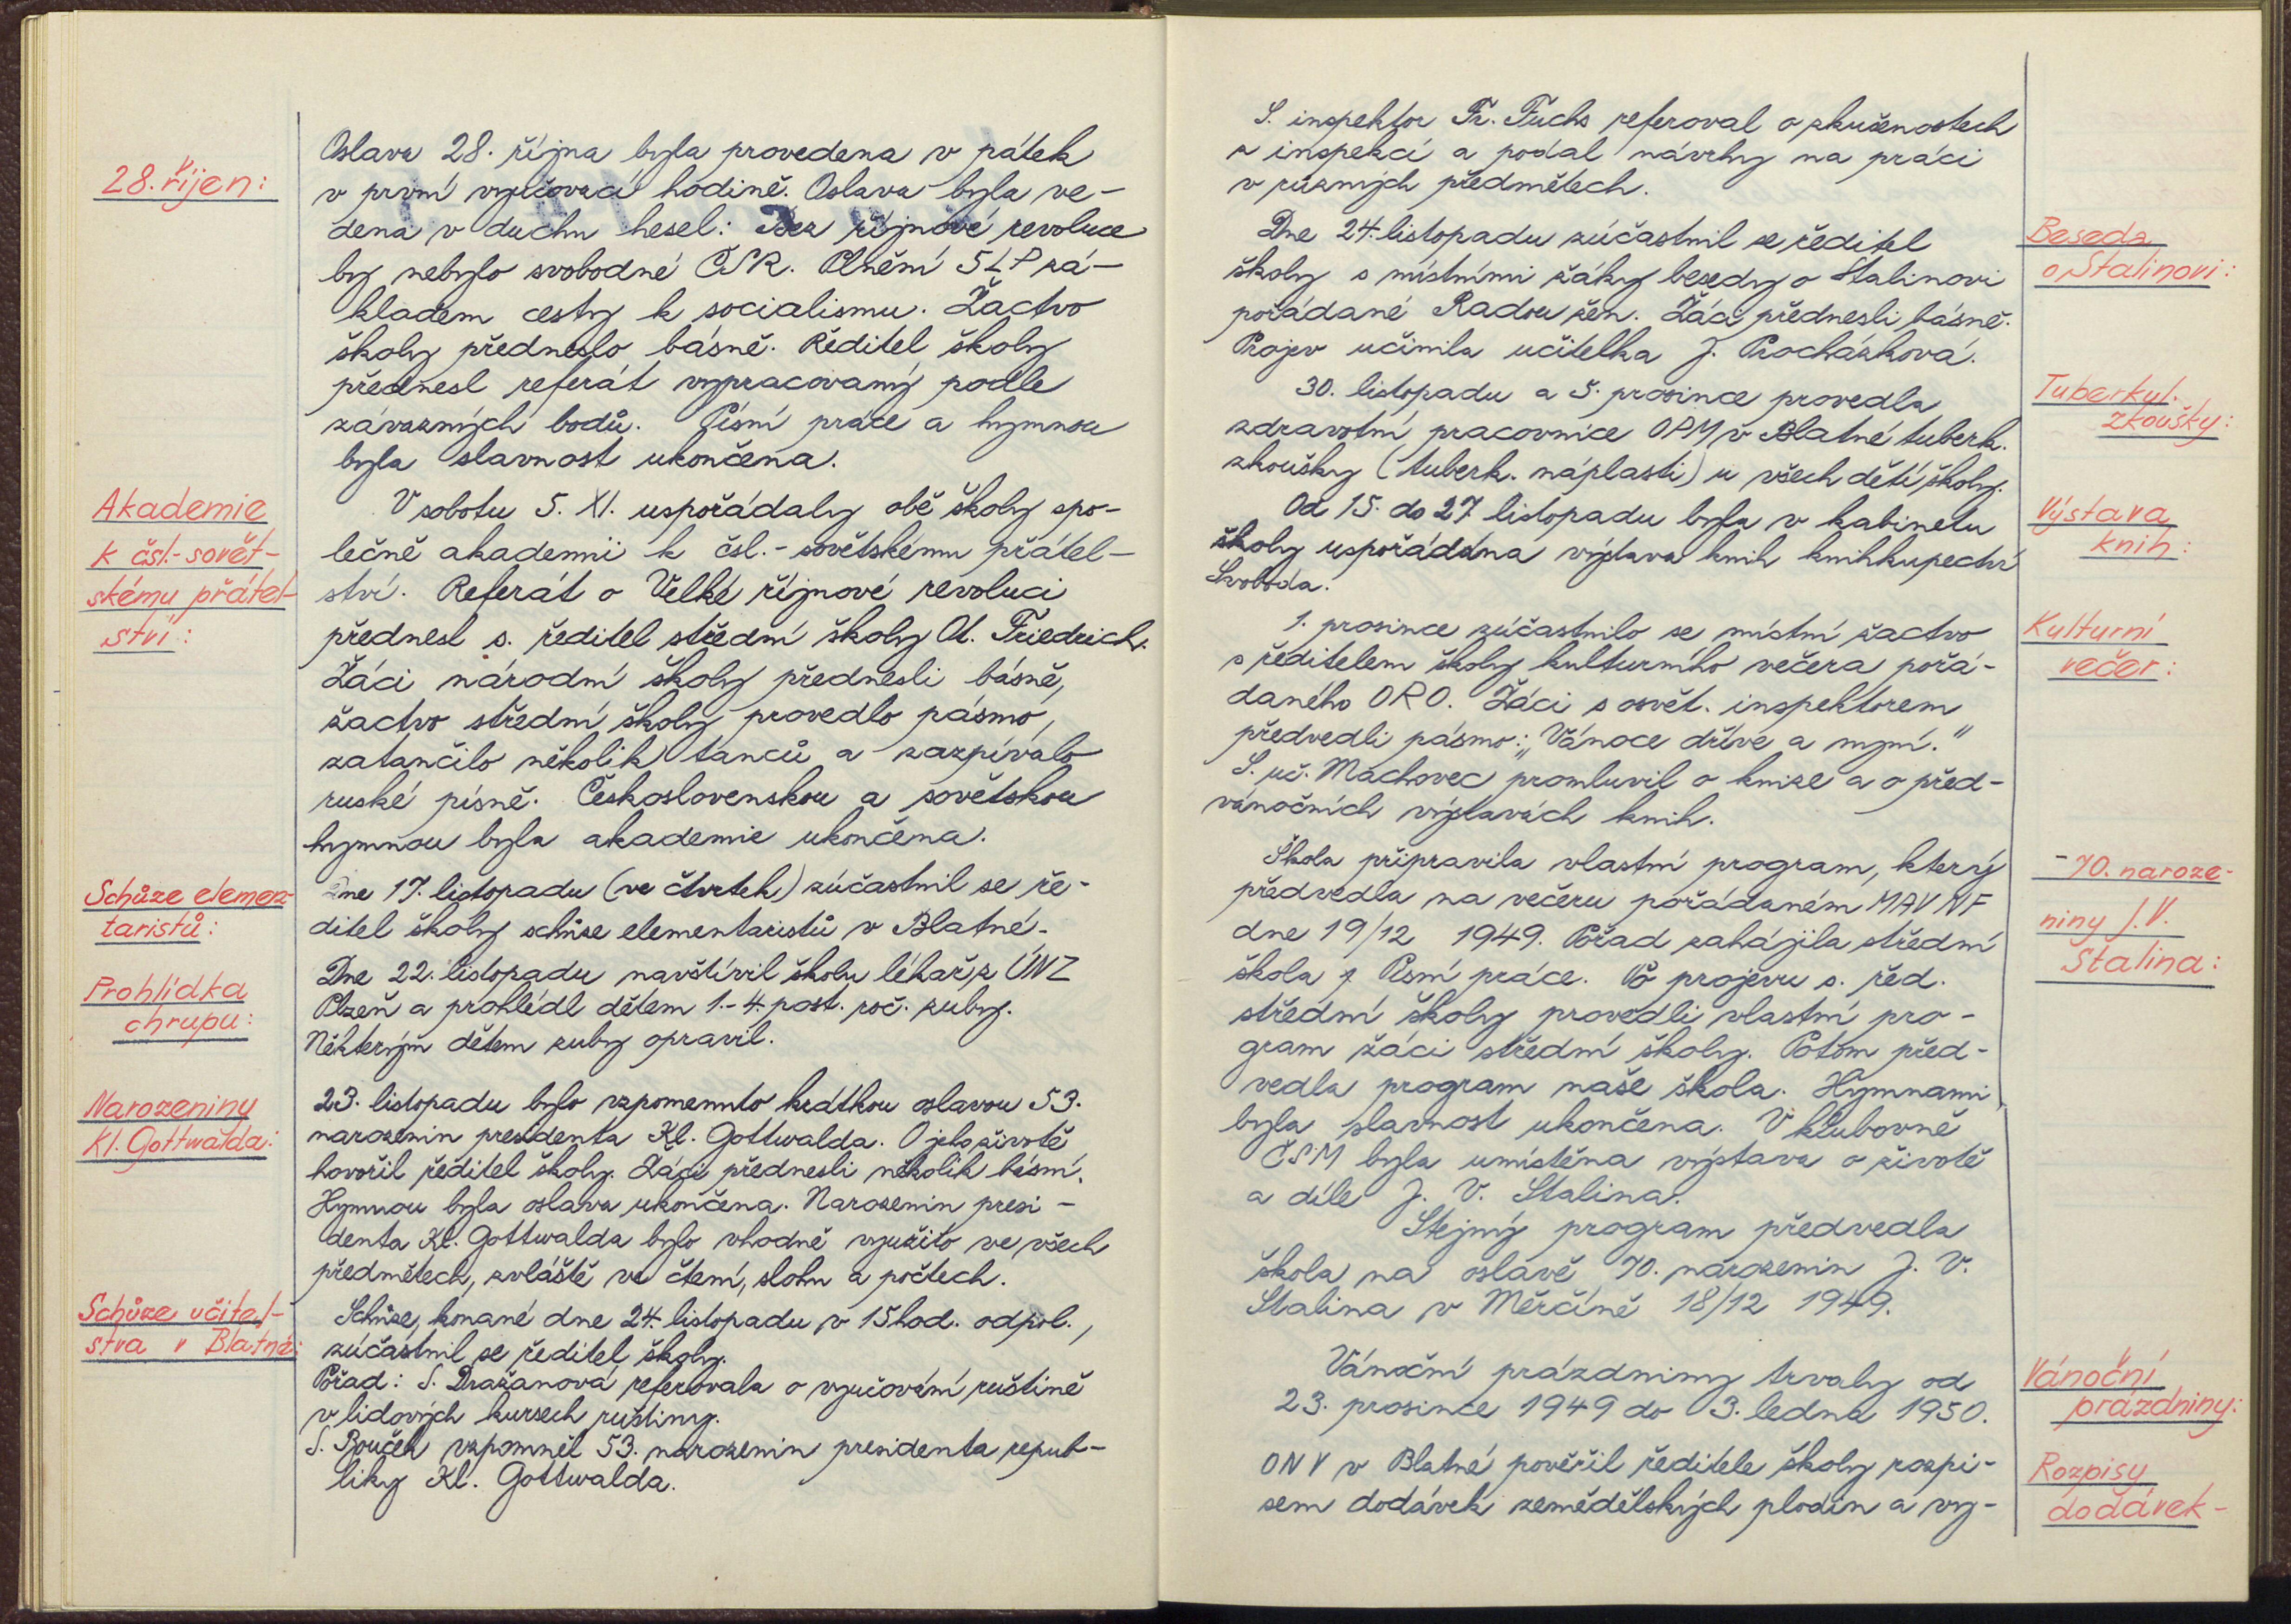 28. říjen:
Oslava 28. října byla provedena v pátek
v první vyučovací hodině. Oslava byla ve-
dena v duchu hesel: Bez říjnové revoluce
by nebylo svobodné ČSR. Plnění 5LP zá-
kladem cesty k socialismu. Žactvo
školy předneslo básně. Ředitel školy
přednesl referát vypracovaný podle
závazných bodů. Písní práce a hymnou
byla slavnost ukončena.
Akademie
k čsl.-sovět-
skému přátel-
ství:
V sobotu 5. XI. uspořádaly obě školy spo-
lečně akademii k čsl.-sovětskému přátel-
ství. Referát o Velké říjnové revoluci
přednesl s. ředitel střední školy Ot. Friedrich.
Žáci národní školy přednesli básně,
žactvo střední školy provedlo pásmo,
zatančilo několik tanců a zazpívalo
ruské písně. Československou a sovětskou
hymnou byla akademie ukončena.
Schůze elemen-
taristů:
Dne 17. listopadu (ve čtvrtek) zúčastnil se ře-
ditel školy schůze elementaristů v Blatné.
Prohlídka
chrupu:
Dne 22. listopadu navštívil školu lékař z ÚNZ
Plzeň a prohlédl dětem 1.-4. post. roč. zuby.
Některým dětem zuby opravil.
Narozeniny
Kl. Gottwalda:
23. listopadu bylo vzpomenuto krátkou oslavou 53.
narozenin presidenta Kl. Gottwalda. O jeho životě
hovořil ředitel školy. Žáci přednesli několik básní.
Hymnou byla oslava ukončena. Narozenin presi-
denta Kl. Gottwalda bylo vhodně využito ve všech
předmětech, zvláště ve čtení, slohu a počtech.
Schůze učitel-
stva v Blatné:
Schůze, konané dne 24. listopadu v 15 hod. odpol.,
zúčastnil se ředitel školy.
Pořad: S. Dražanová referovala o vyučování ruštině
v lidových kursech ruštiny.
S. Rouček vzpomněl 53. narozenin presidenta repub-
liky Kl. Gottwalda.
S. inspektor Fr. Fuchs referoval o zkušenostech
z inspekcí a podal návrhy na práci
v různých předmětech.
Beseda
o Stalinovi:
Dne 24. listopadu zúčastnil se ředitel
školy s místními žáky besedy o Stalinovi
pořádané Radou žen. Žáci přednesli básně.
Projev učinila učitelka J. Procházková.
Tuberkul.
zkoušky:
30. listopadu a 5. prosince provedla
zdravotní pracovnice OPM v Blatné tuberk.
zkoušky (tuberk. náplasti) u všech dětí školy.
Výstava
knih:
Od 15. do 27. listopadu byla v kabinetu
školy uspořádána výstava knih knihkupectví
Svoboda.
Kulturní
večer:
1. prosince zúčastnilo se místní žactvo
s ředitelem školy kulturního večera pořá-
daného ORO. Žáci s osvět. inspektorem
předvedli pásmo: „Vánoce dříve a nyní."
S. uč. Machovec promluvil o knize a o před-
vánočních výstavách knih.
- 70. naroze-
niny J. V.
Stalina:
Škola připravila vlastní program, který
předvedla na večeru pořádaném MAV NF
dne 19/12 1949. Pořad zahájila střední
škola z Písní práce. Po projevu s. řed.
střední školy provedli vlastní pro-
gram žáci střední školy. Potom před-
vedla program naše škola. Hymnami
byla slavnost ukončena. V klubovně
ČSM byla umístěna výstava o životě
a díle J. V. Stalina.
Stejný program předvedla
škola na oslavě 70. narozenin J. V.
Stalina v Měrčíně 18/12 1949.
Vánoční
prázdniny:
Vánoční prázdniny trvaly od
23. prosince 1949 do 3. ledna 1950.
Rozpisy
dodávek-
ONV v Blatné pověřil ředitele školy rozpi-
sem dodávek zemědělských plodin a vý-